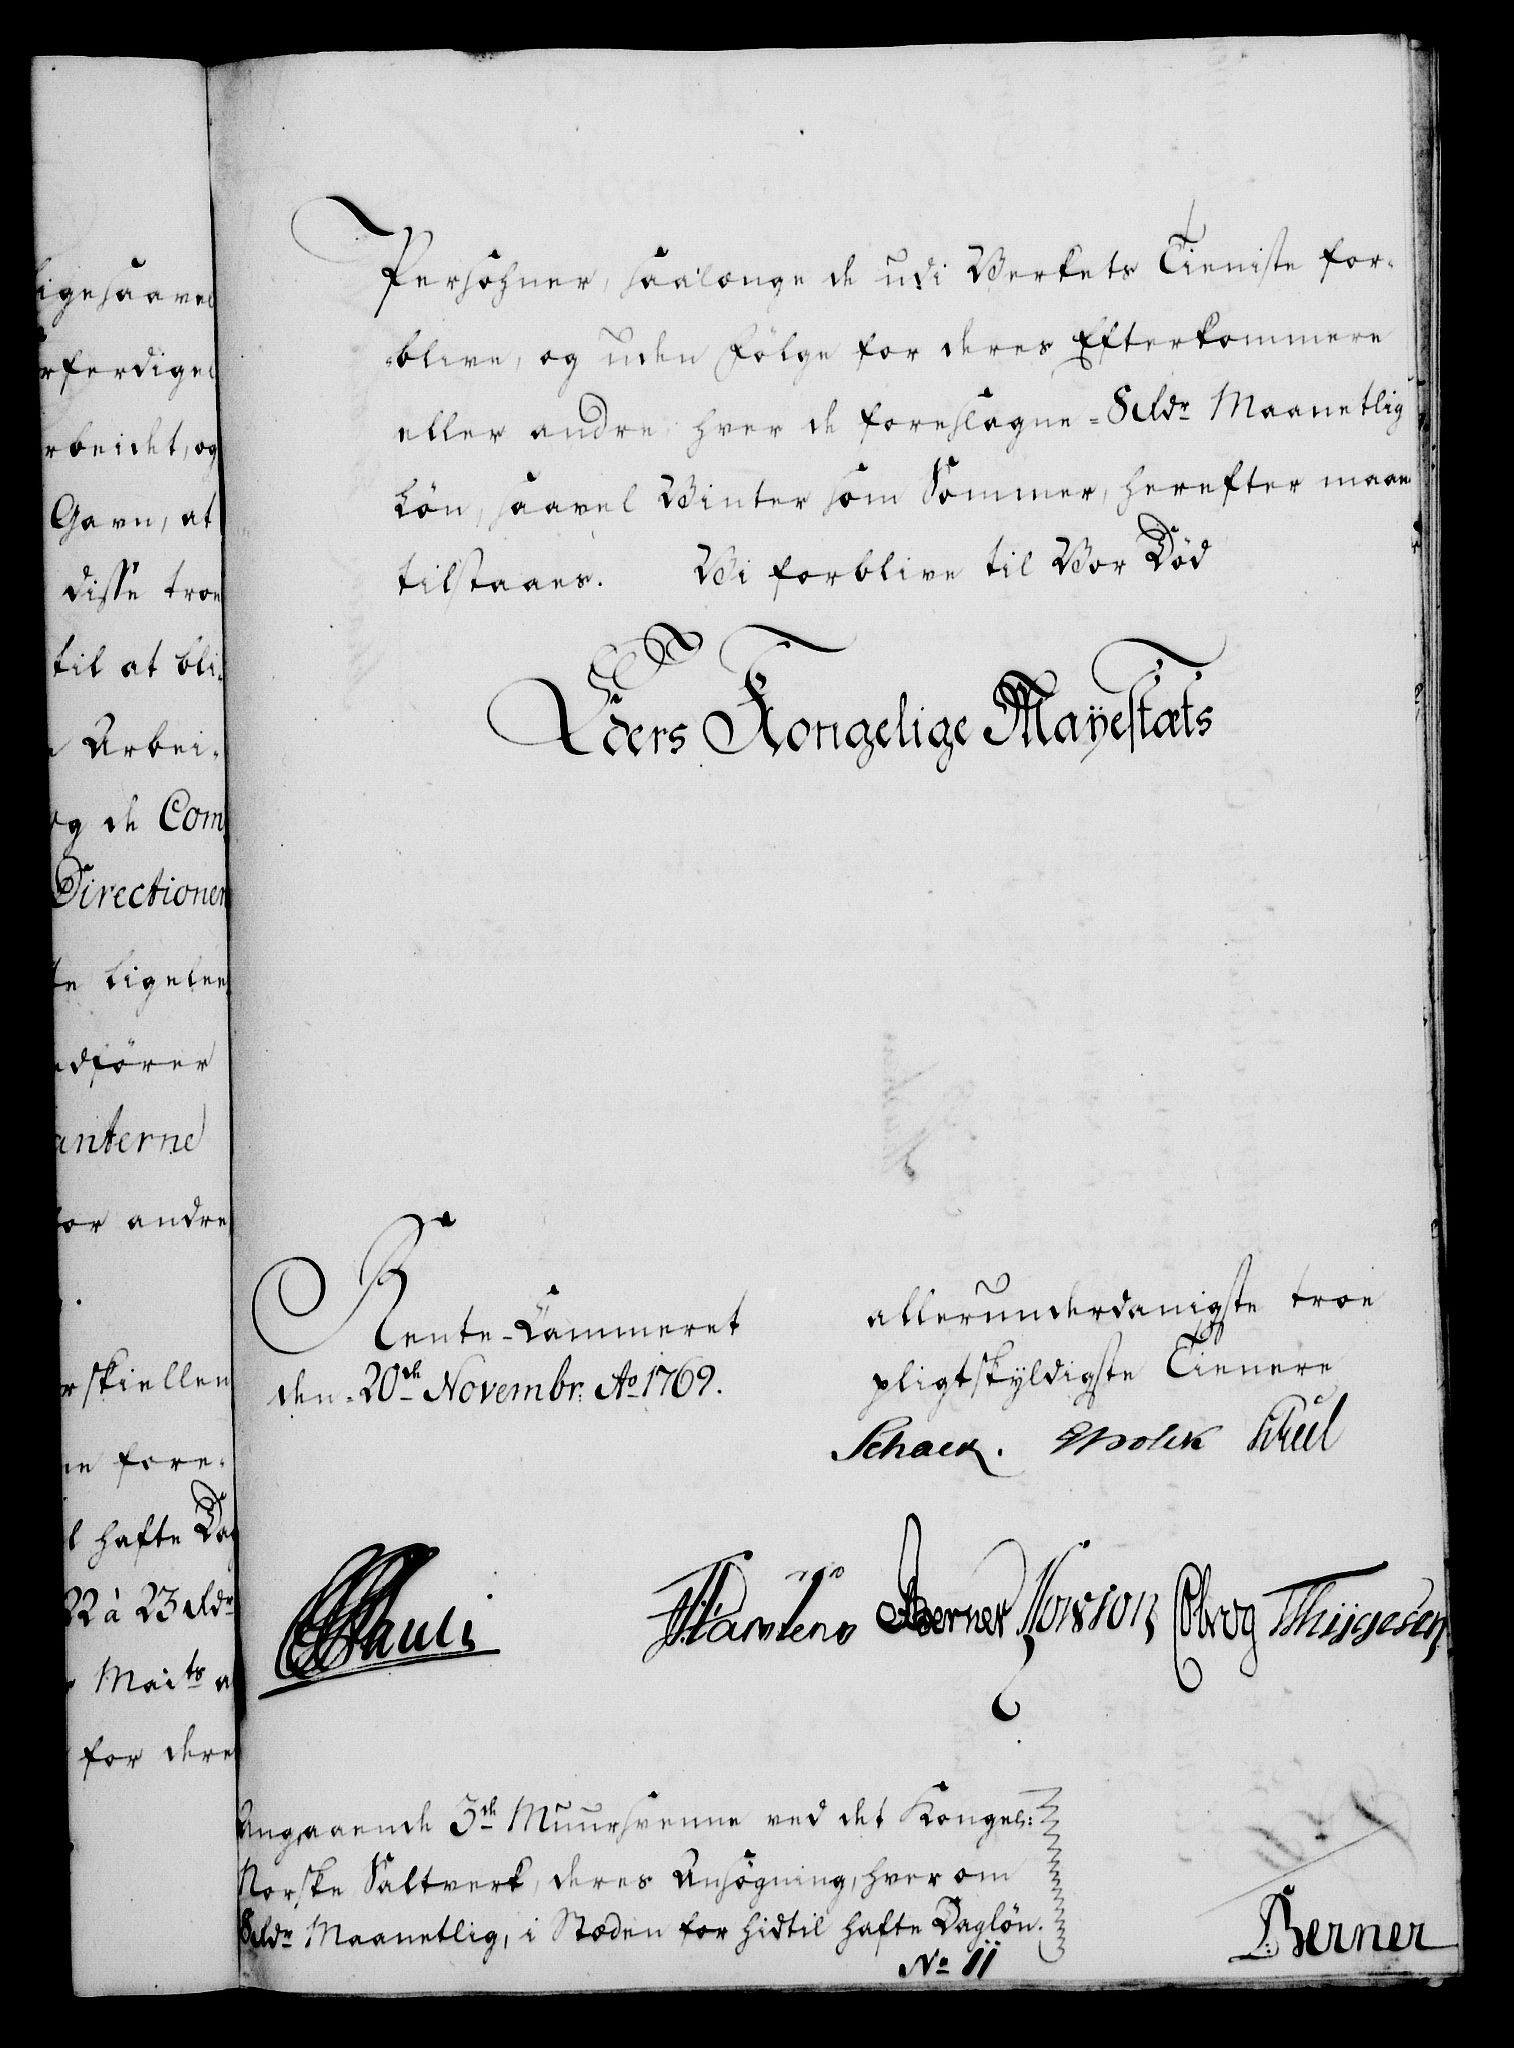 ligesaavel
rferdiget
rbeidet, og
Gavn, at
disse troe
til at bli-
Arbei-
og de Com
Directionen
te ligelee
dfører
anterne
for andre
rskiellen
ne fore-
l hafte Dag
22 à 23 rldr
Maits a
for dere
Persohner, saalænge de udi Verkets Tieniste for-
-blive, og uden Følge for deres Efterkommere
eller andre, hver de foreslagne = 8 rldr Maanetlig
Løn, saavel Winter som Sommer, herefter maae
tilstaaes. Vi forblive til Vor Død
Eders Kongelige Mayestæts
Rente-Cammeret
den = 20de Novembr: Ao 1769.
allerunderdanigste troe
pligtskyldigste Tienere
Schack.
CPauli
Berner
Thygesen
Angaaende 3de Muursvenne ved det Kongel:
Norske Saltverk, deres Ansøgning, hver om
8 rldr Maanetlig, i Stæden for hidtil hafte Dagløn.
No 11
Berner